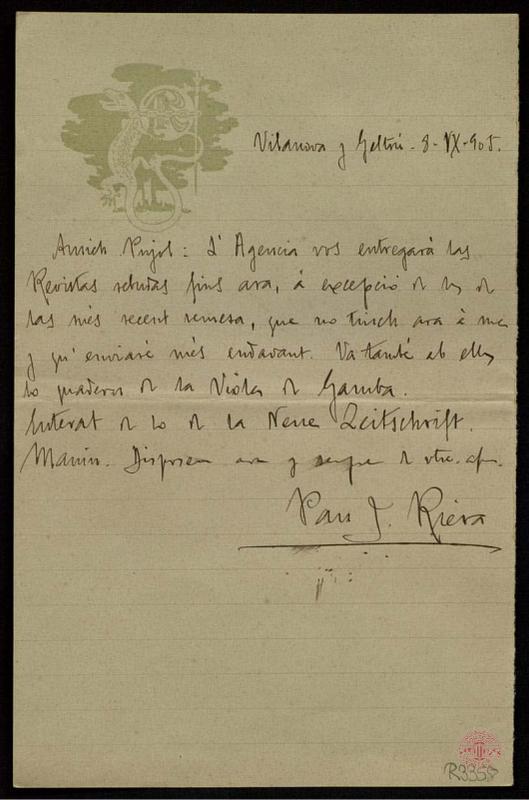 Vilanova y Geltrú - 8 - IX - 905.
Amich Pujol: L'Agencia vos entregará las
Revistas rebudas fins ara, á excepció de las de
las més recent remesa, que no tinch ara á ma
y qu'enviaré més endavant. Va també ab ellas
lo quadern de la Viola de Gamba.
Enterat de lo de la Neue Zeitschrift.
Manin. Disposeu ara y sempre de vtre. afm.
Pau J. Riera
R3355